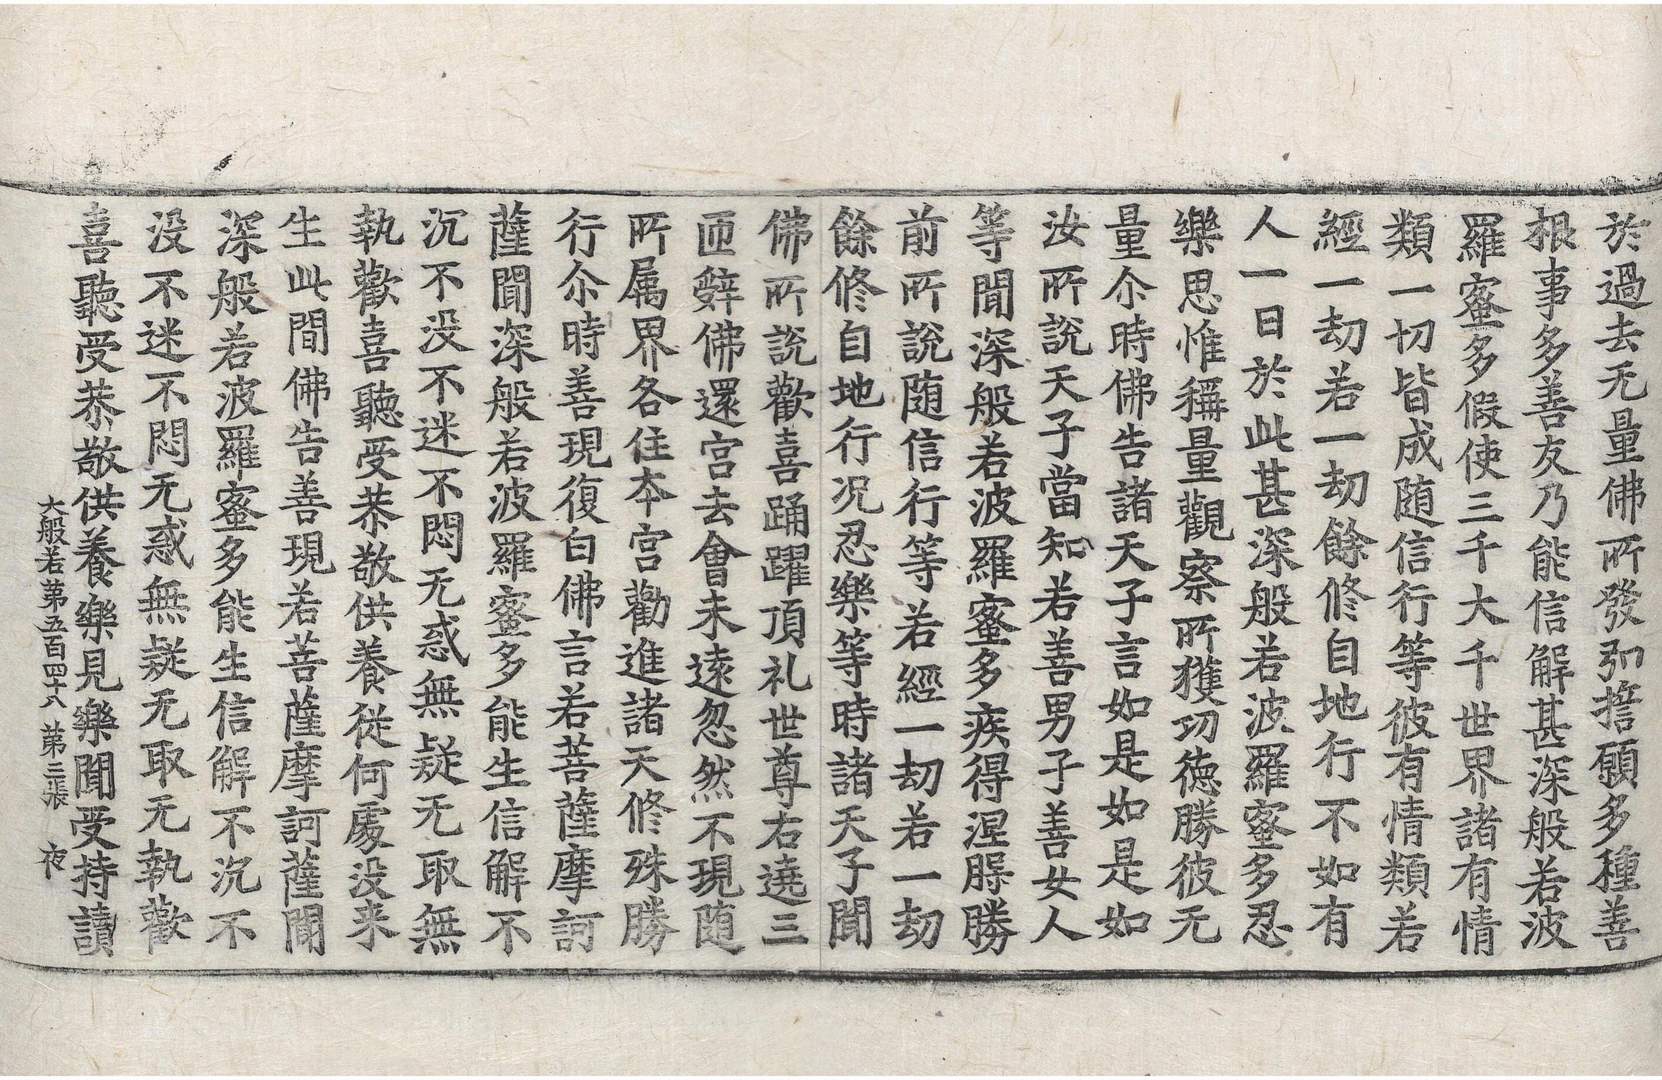 於過去无量佛所發弘擔願多種善
根事多善友乃能信解甚深般若波
羅蜜多假使三千大千世界諸有情
類一切皆成随信行等彼有情類若
經一劫若一劫餘修自地行不如有
人一日於此甚深般若波羅蜜多忍
樂思惟稱量觀察所獲功德勝彼无
量尒時佛告諸天子言如是如是如
汝所說天子當知若善男子善女人
等聞深般若波羅蜜多疾得涅槃勝
前所說随信行等若經一劫若一劫
餘修自地行况忍樂等時諸天子聞
佛所說歡喜踊躍頂礼世尊右遶三
匝辤佛還宮去會未遠忽然不現随
所属界各住本宮勸進諸天修殊勝
行尒時善現復白佛言若菩薩摩訶
薩聞深般若波羅蜜多能生信解不
沉不没不迷不悶无惑無疑无取無
執歡喜聽受恭敬供養從何處没来
生此間佛告善現若菩薩摩訶薩聞
深般若波羅蜜多能生信解不沉不
没不迷不悶无惑無疑无取无執歡
喜聽受恭敬供養樂見樂聞受持讀
大般若第五百四十六 第二張 夜